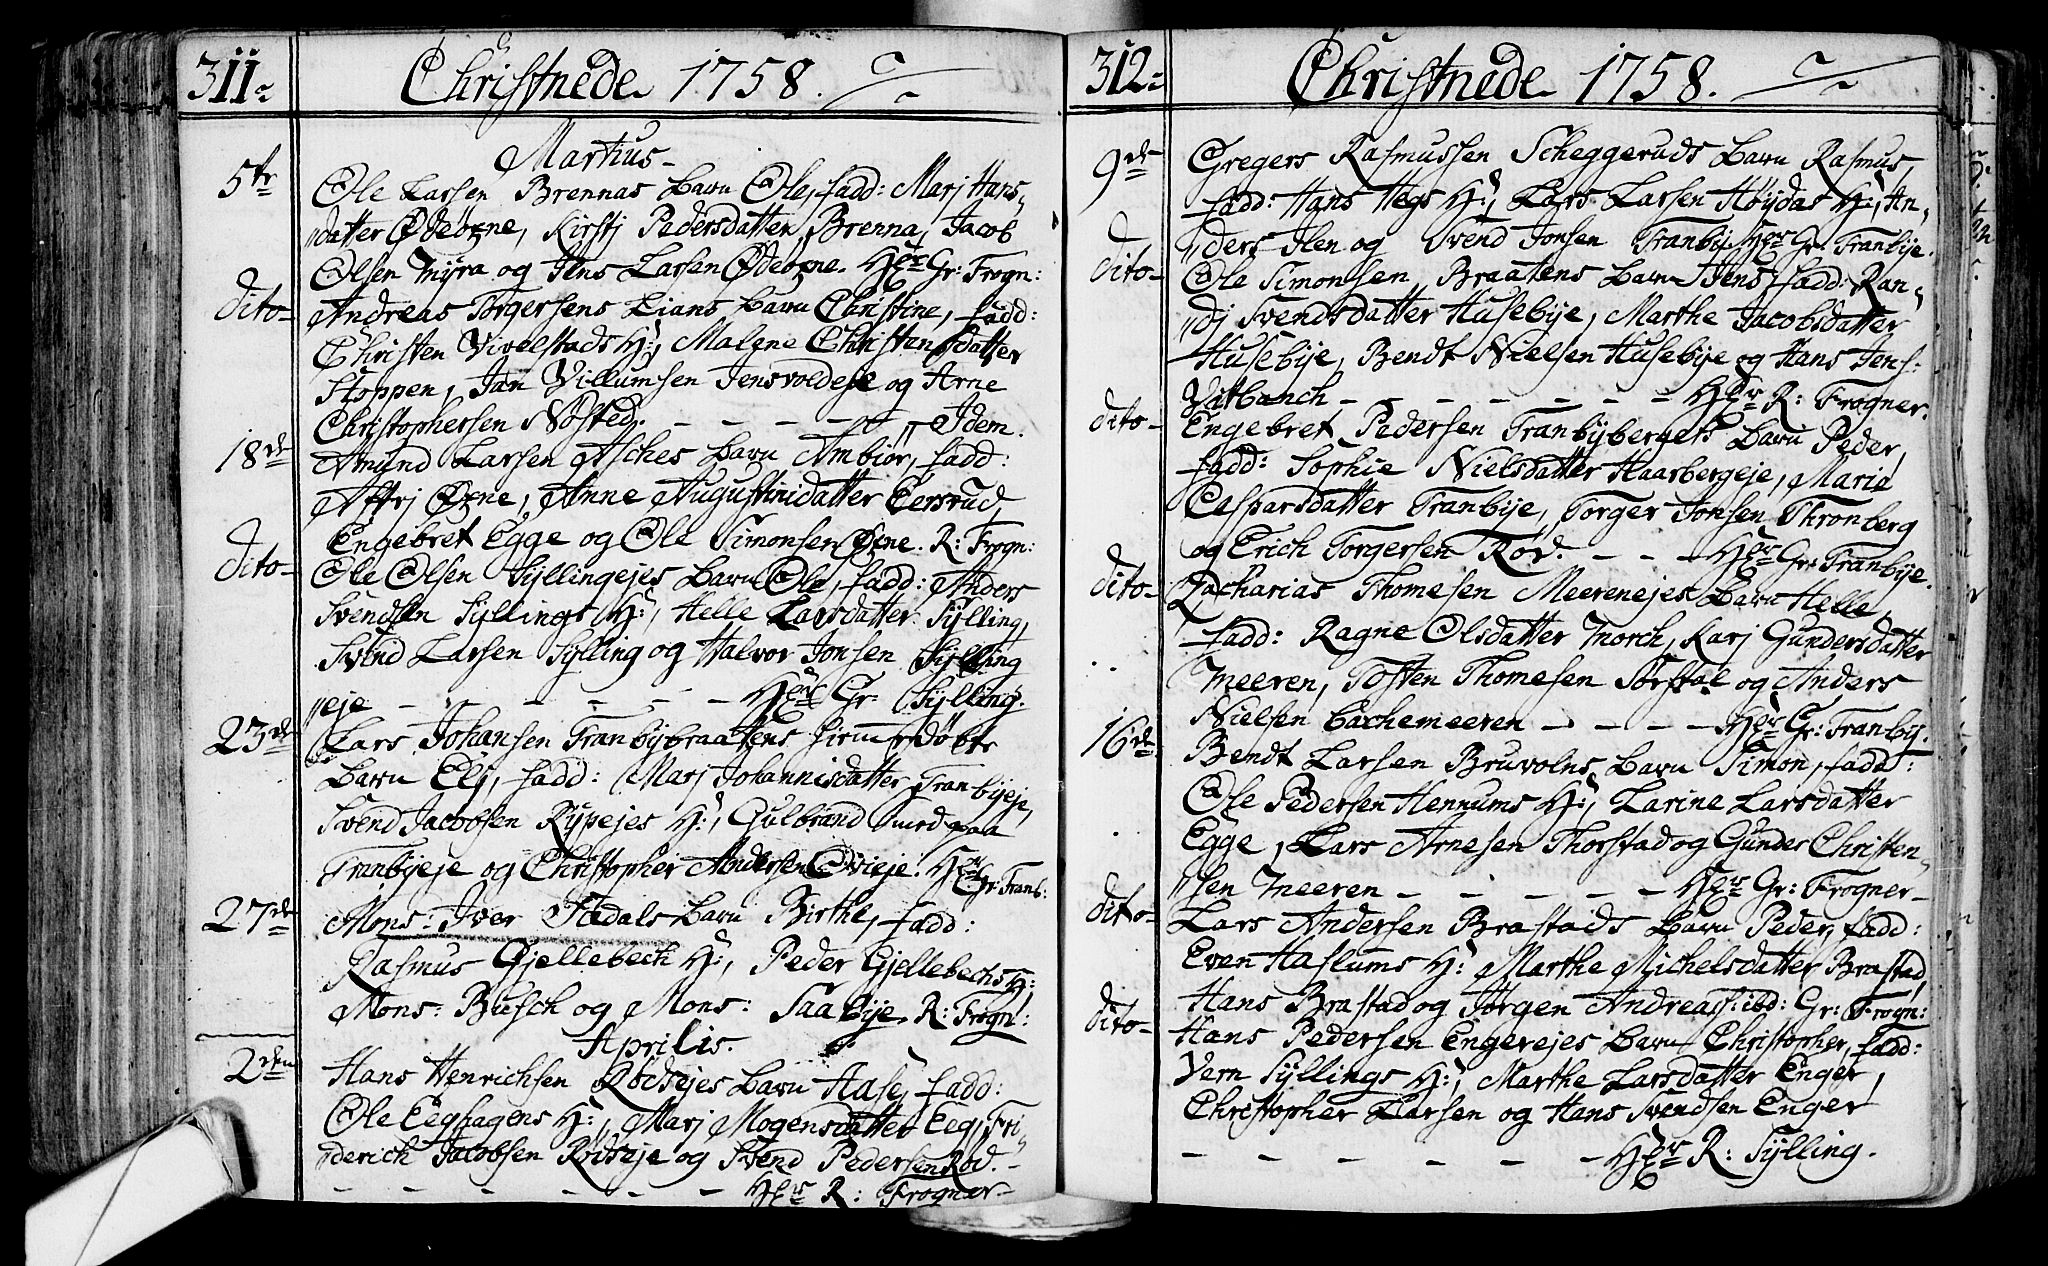 311.
Christnede 1758.
Martius
5te Ole Larsen Brennas barn Ole, fadd: Marj Hans-
datter Ødeørne, Kirstj Pedersdatter Brenna, Jacob
Olsen Myra og Jens Larsen Ødeørne. Hr Gr: Frogn:
dito- Andreas Torgersens Lians barn Christine, fadd:
Christen Vivelstads H:, Malene Christensdatter
Stoppen, Jan Villumsen Jensvoldeje og Arne
Christophersen Nøsted. - - - - - Idem.
18de Amund Larsen Asches barn Ambiør, fadd:
Affrj Ørne, Anne Augustinidatter Eersrud,
Engebret Egge og Ole Simonsen Ørne. R: Frogn:
dito- Ole Olsen Syllingejes barn Ole, fadd: Anders
Svendsen Syllings H:, Helle Larsdatter Sylling,
Svend Larsen Sylling og Halvor Jonsen Sylling
eje - - - - - - Hr Gr: Sylling.
23de Lars Johansen Tranbybraatens hiemmedøbte
barn Elj, fadd: Marj Johannisdatter Tranbyeje,
Svend Jacobsen Rypejes H:, Gulbrand
Tranbyeje og Christopher Andersen Hr Gr: Tranb:
27de Mons: Iver Fædals barn Birthe, fadd:
Rasmus Gjellebech H:, Peder Gjellebechs H:
Mons: Busch og Mons: Saabye. R: Frogn:
Aprilis.
2den Hans Henrichsen Rødsejes barn Hase, fadd:
Ole Eeghagens H:, Marj Mogensdatter Eeg, Fri-
derich Jacobsen Rødseje og Svend Pedersen Rød.
- - - - - - Hr R: Frogner-
312.
Christnede 1758.
9de Gregers Rasmussen Scheggeruds barn Rasmus,
fadd: Hans Hegs H:, Lars Larsen Høydas H:, An-
ders Ilen og Svend Jonsen Tranby. Hr Gr: Tranbye.
dito- Ole Simonsen Braatens barn Jens, fadd: Ran-
dj Svendsdatter Husebye, Marthe Jacobsdatter
Husebye, Bendt Nielsen Husebye og Hans Jens:
Vatbanch - - - - - - - Hr R: Frogner.
dito- Engebret Pedersen Tranbybergets barn Peder,
fadd: Sophie Nielsdatter Haarbergeje, Maria
Casparsdatter Tranbye, Torger Jonsen Thronberg
og Erich Torgersen Rød. - - - Hr Gr: Tranbye.
dito- Zacharias Thomesen Meerenejes barn Helle,
fadd: Ragne Olsdatter Morch, Karj Gundersdatter
Meeren, Tosten Thomesen Torstal og Anders
Nielsen Bachemeeren - - - - Hr Gr: Tranby.
16de Bendt Larsen Bruvolns barn Simon, fadd:
Ole Pedersen Hennums H:, Larine Larsdatter
Egge, Lars Arnesen Thorstad og Gunder Christen-
sen Meeren - - - - - Hr Gr: Frogner-
dito- Lars Andersen Brastads barn Peder, fadd:
Even Haslums H: Marthe Michelsdatter Brastad,
Hans Brastad og Jørgen Andreass: ibd: Gr: Frogn:
dito- Hans Pedersen Engerejes barn Christopher, fadd:
Vern Syllings H:, Marthe Larsdatter Enger,
Christopher Larsen og Hans Svendsen Enger
- - - - - - Hr R: Sylling.